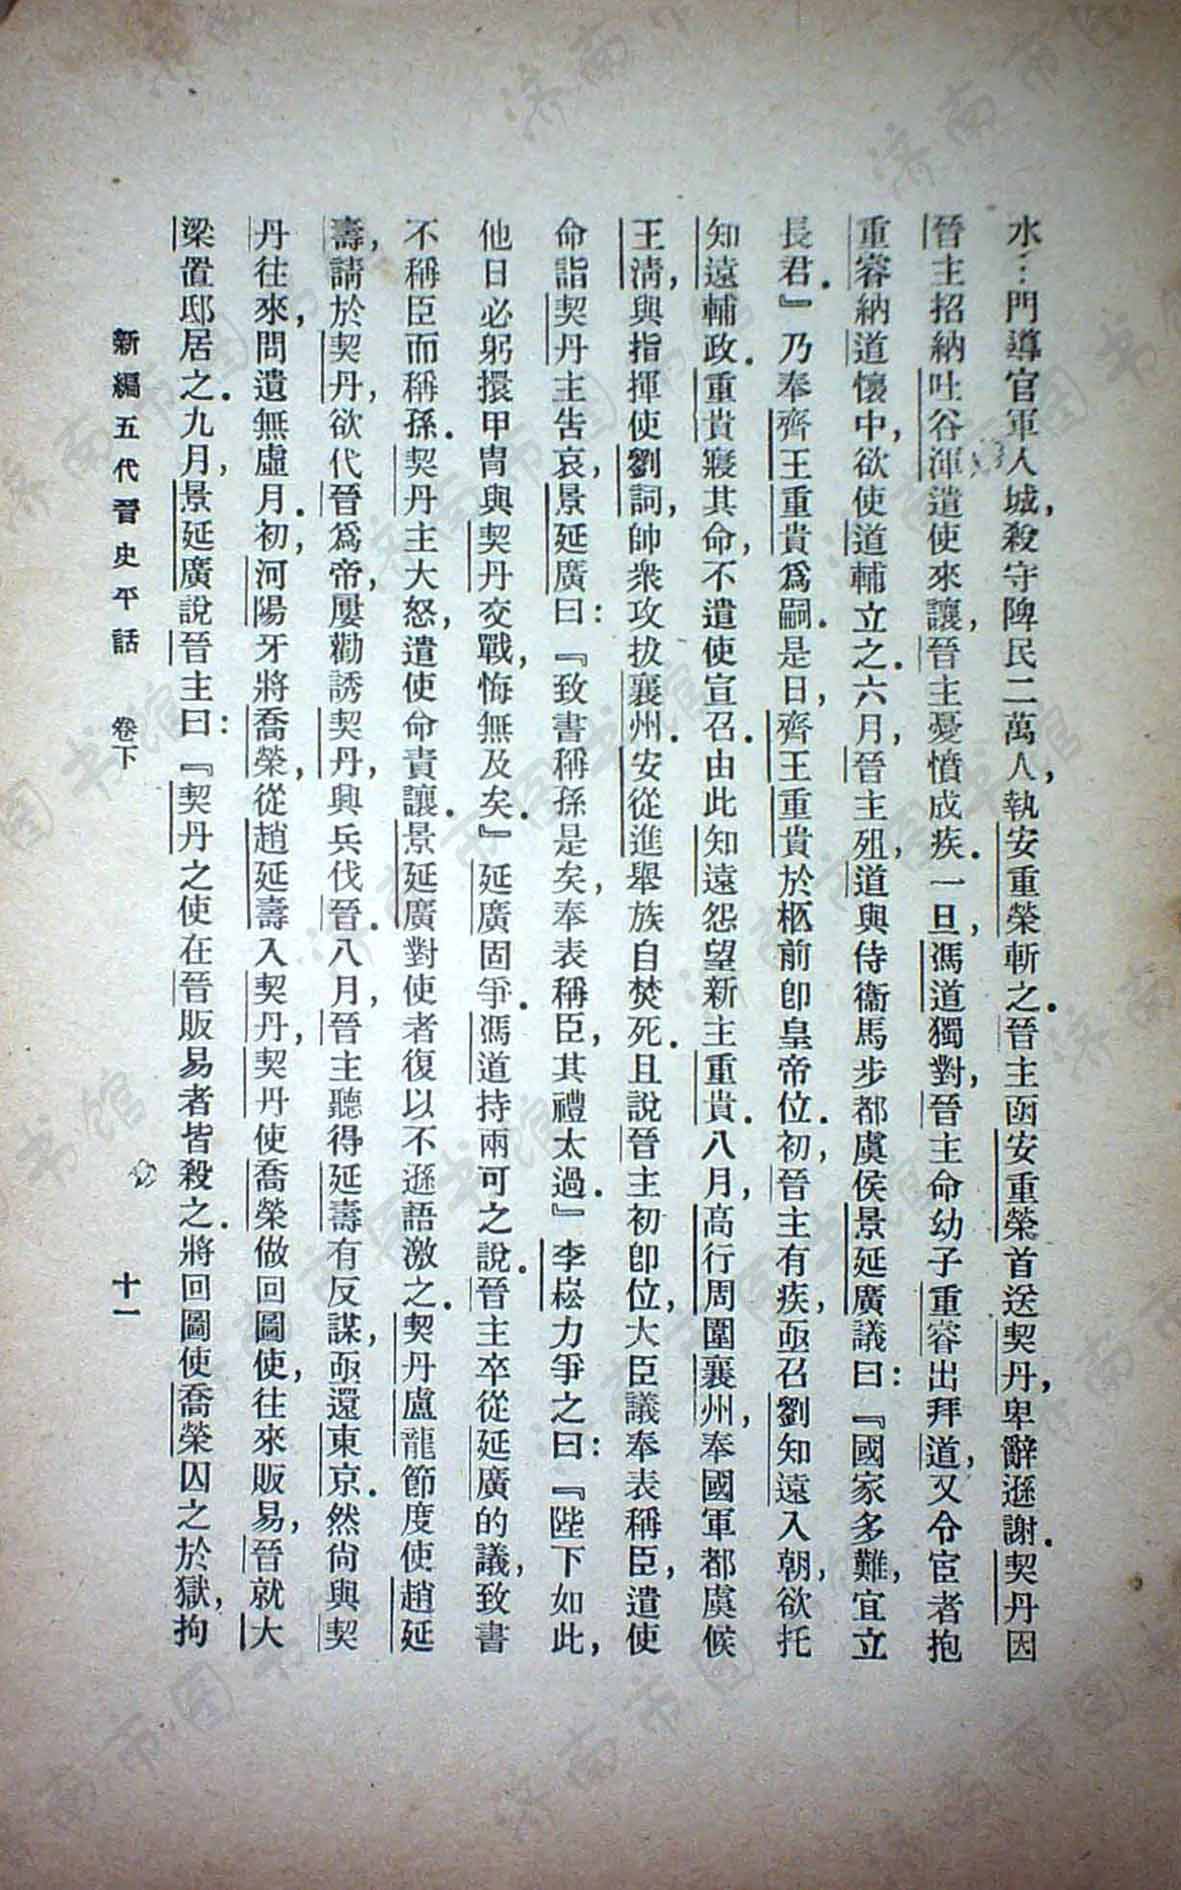 水…門導官軍入城，殺守陴民二萬人，執安重榮斬之。晉主函安重榮首送契丹，卑辭遜謝。契丹因
晉主招納吐谷渾，遣使來讓，晉主憂憤成疾。一旦，馮道獨對，晉主命幼子重睿出拜道，又令宦者抱
重睿納道懷中，欲使道輔立之。六月，晉主殂，道與侍衞馬步都虞侯景延廣議曰：『國家多難，宜立
長君。』乃奉齊王重貴爲嗣。是日，齊王重貴於柩前卽皇帝位。初，晉主有疾，亟召劉知遠入朝，欲托
知遠輔政。重貴寢其命，不遣使宣召。由此知遠怨望新主重貴。八月，高行周圍襄州，奉國軍都虞候
王清，與指揮使劉詞，帥衆攻拔襄州。安從進舉族自焚死。且說晉主初卽位，大臣議奉表稱臣，遣使
命詣契丹主告哀，景延廣曰：『致書稱孫是矣，奉表稱臣，其禮太過。』李崧力爭之曰：『陛下如此，
他日必躬擐甲冑與契丹交戰，悔無及矣。』延廣固爭。馮道持兩可之說。晉主卒從延廣的議，致書
不稱臣而稱孫。契丹主大怒，遣使命責讓。景延廣對使者復以不遜語激之。契丹盧龍節度使趙延
壽，請於契丹，欲代晉爲帝，屢勸誘契丹，興兵伐晉。八月，晉主聽得延壽有反謀，亟還東京。然尙與契
丹往來，問遺無虛月。初，河陽牙將喬榮，從趙延壽入契丹，契丹使喬榮做回圖使，往來販易，晉就大
梁置邸居之。九月，景延廣說晉主曰：『契丹之使在晉販易者皆殺之。將回圖使喬榮囚之於獄，拘
新編五代晉史平話 卷下 十一
济南市图书馆